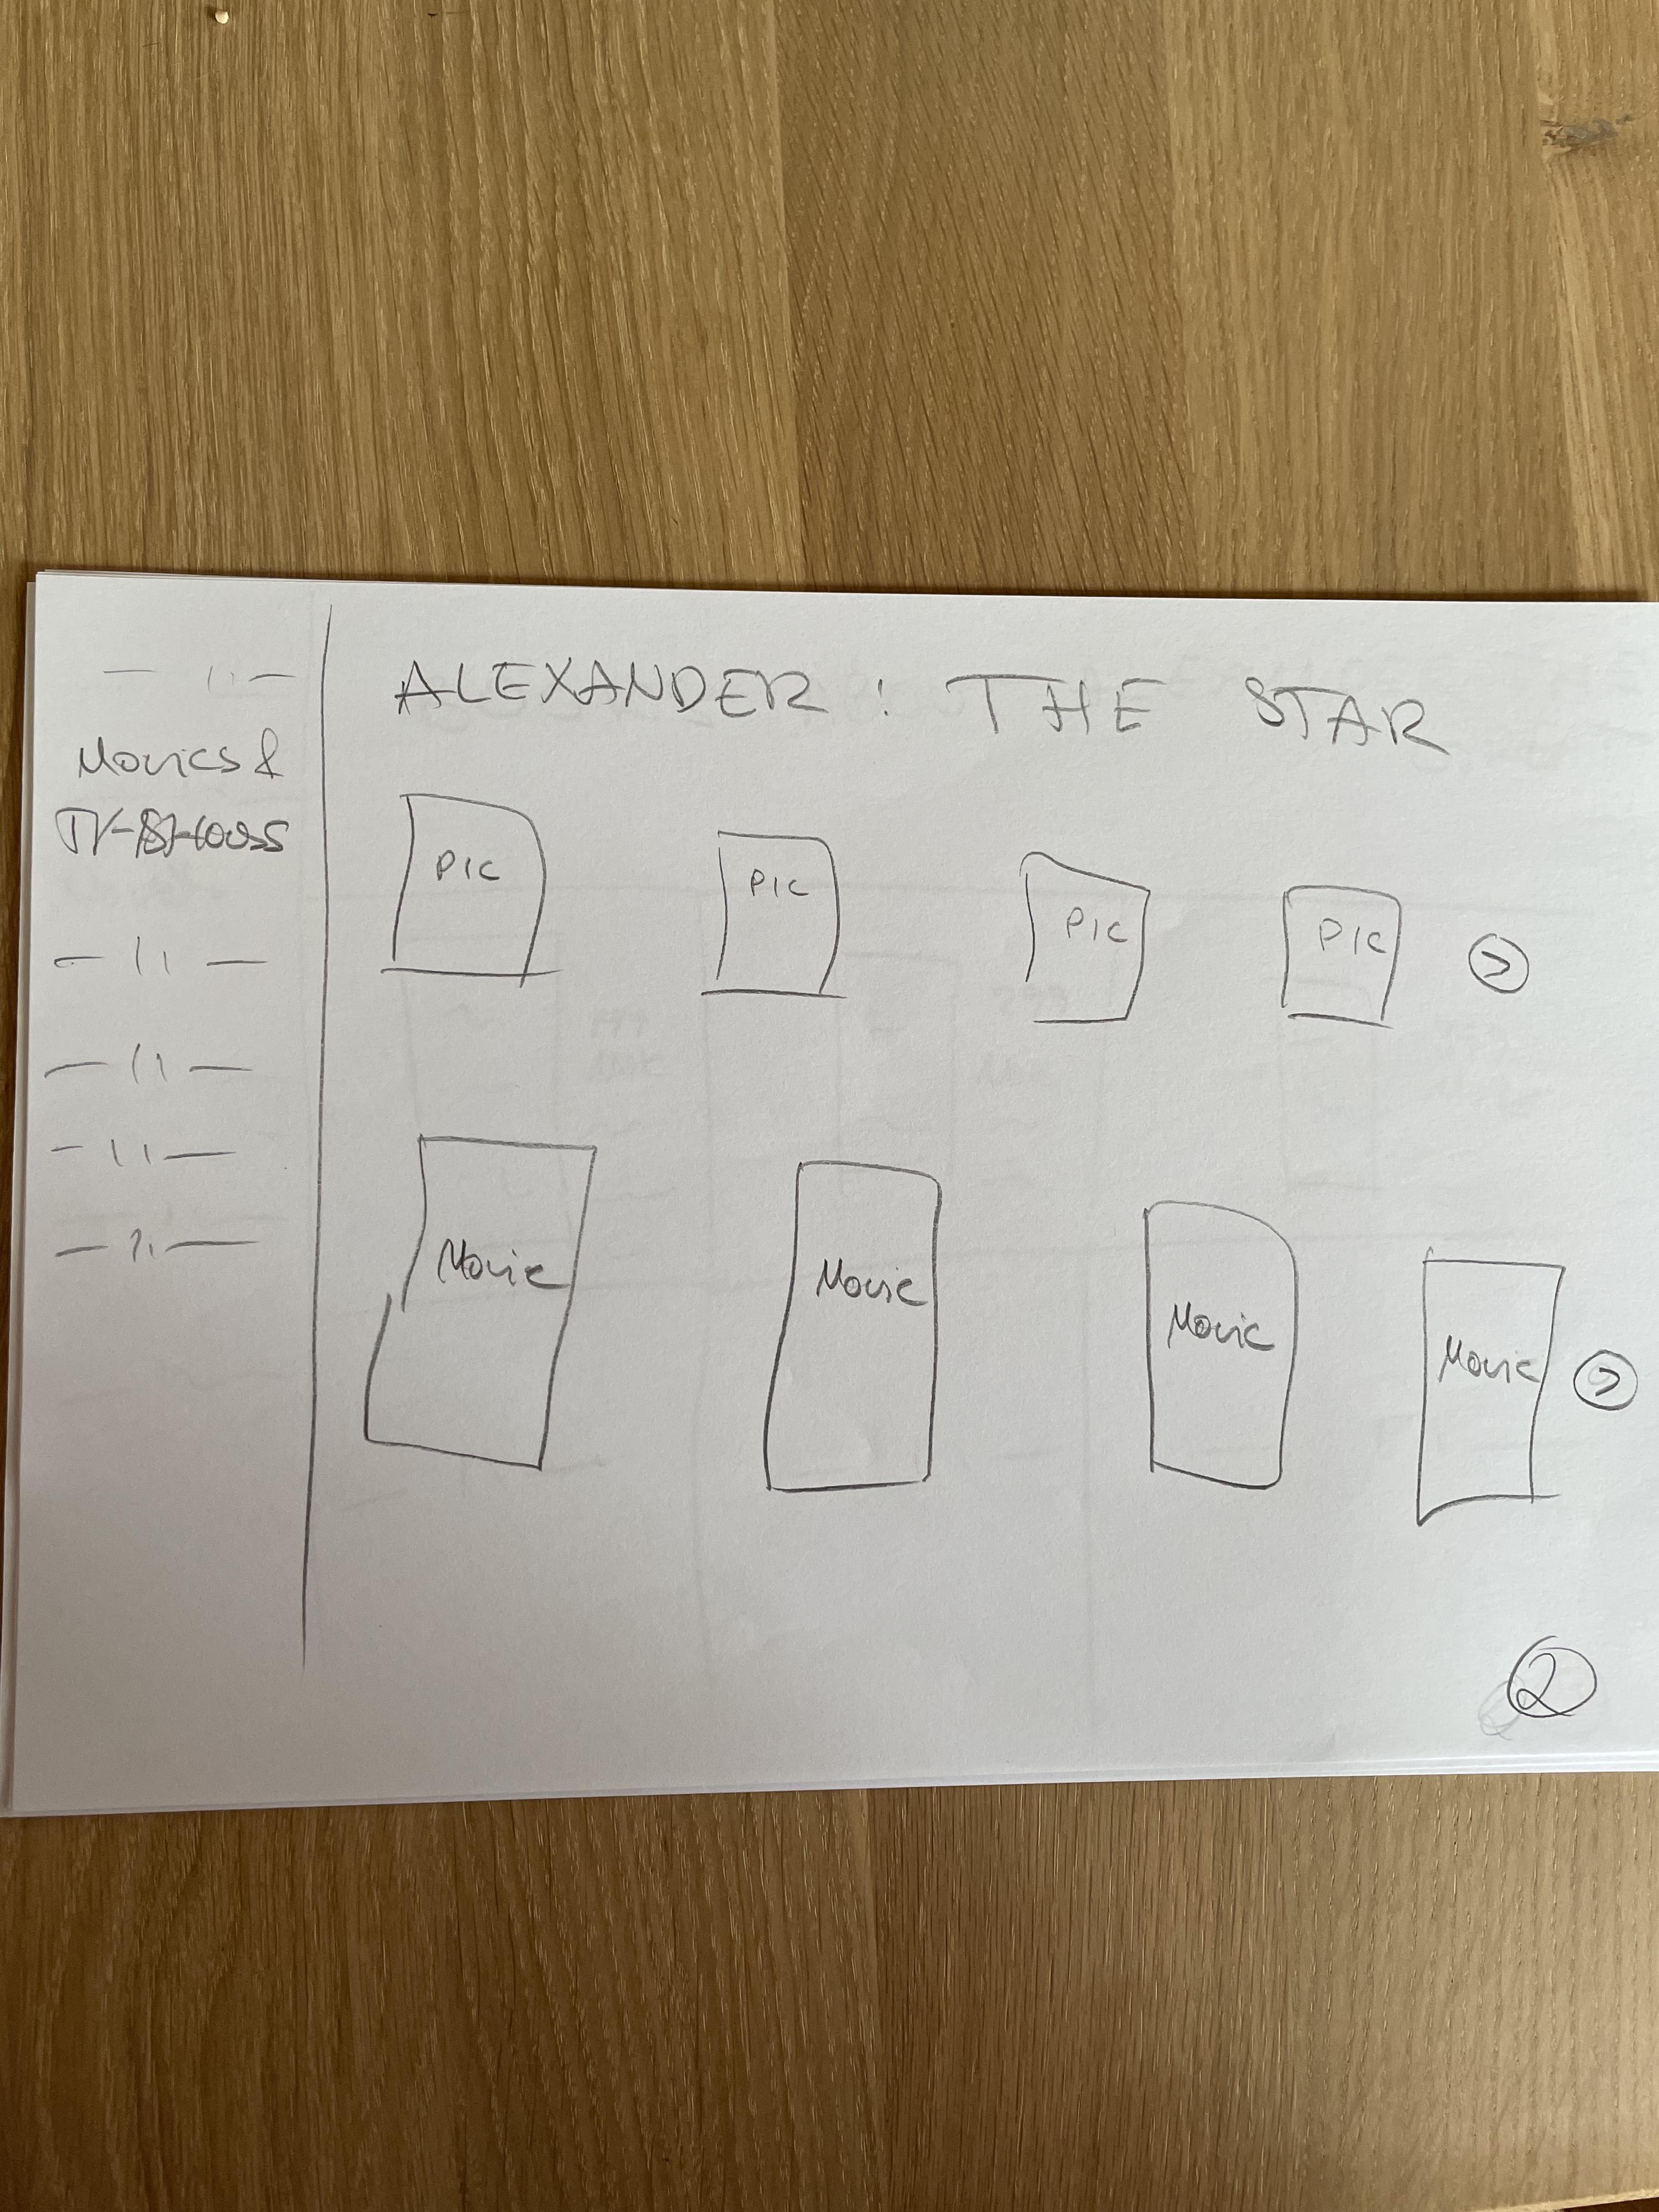 — 11 —
Movies &
TV-Shows
— 11 —
— 11 —
— 11 —
— 11 —
ALEXANDER : THE STAR
PIC PIC PIC PIC >
Movie Movie Movie Movie >
2